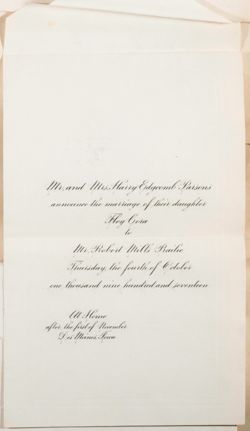 Mr. and Mrs. Harry Edgcomb Parsons
announce the marriage of their daughter
Floy Cora
to
Mr. Robert Mills Bailie
Thursday, the fourth of October
one thousand nine hundred and seventeen
At Home
after the first of November
Des Moines, Iowa